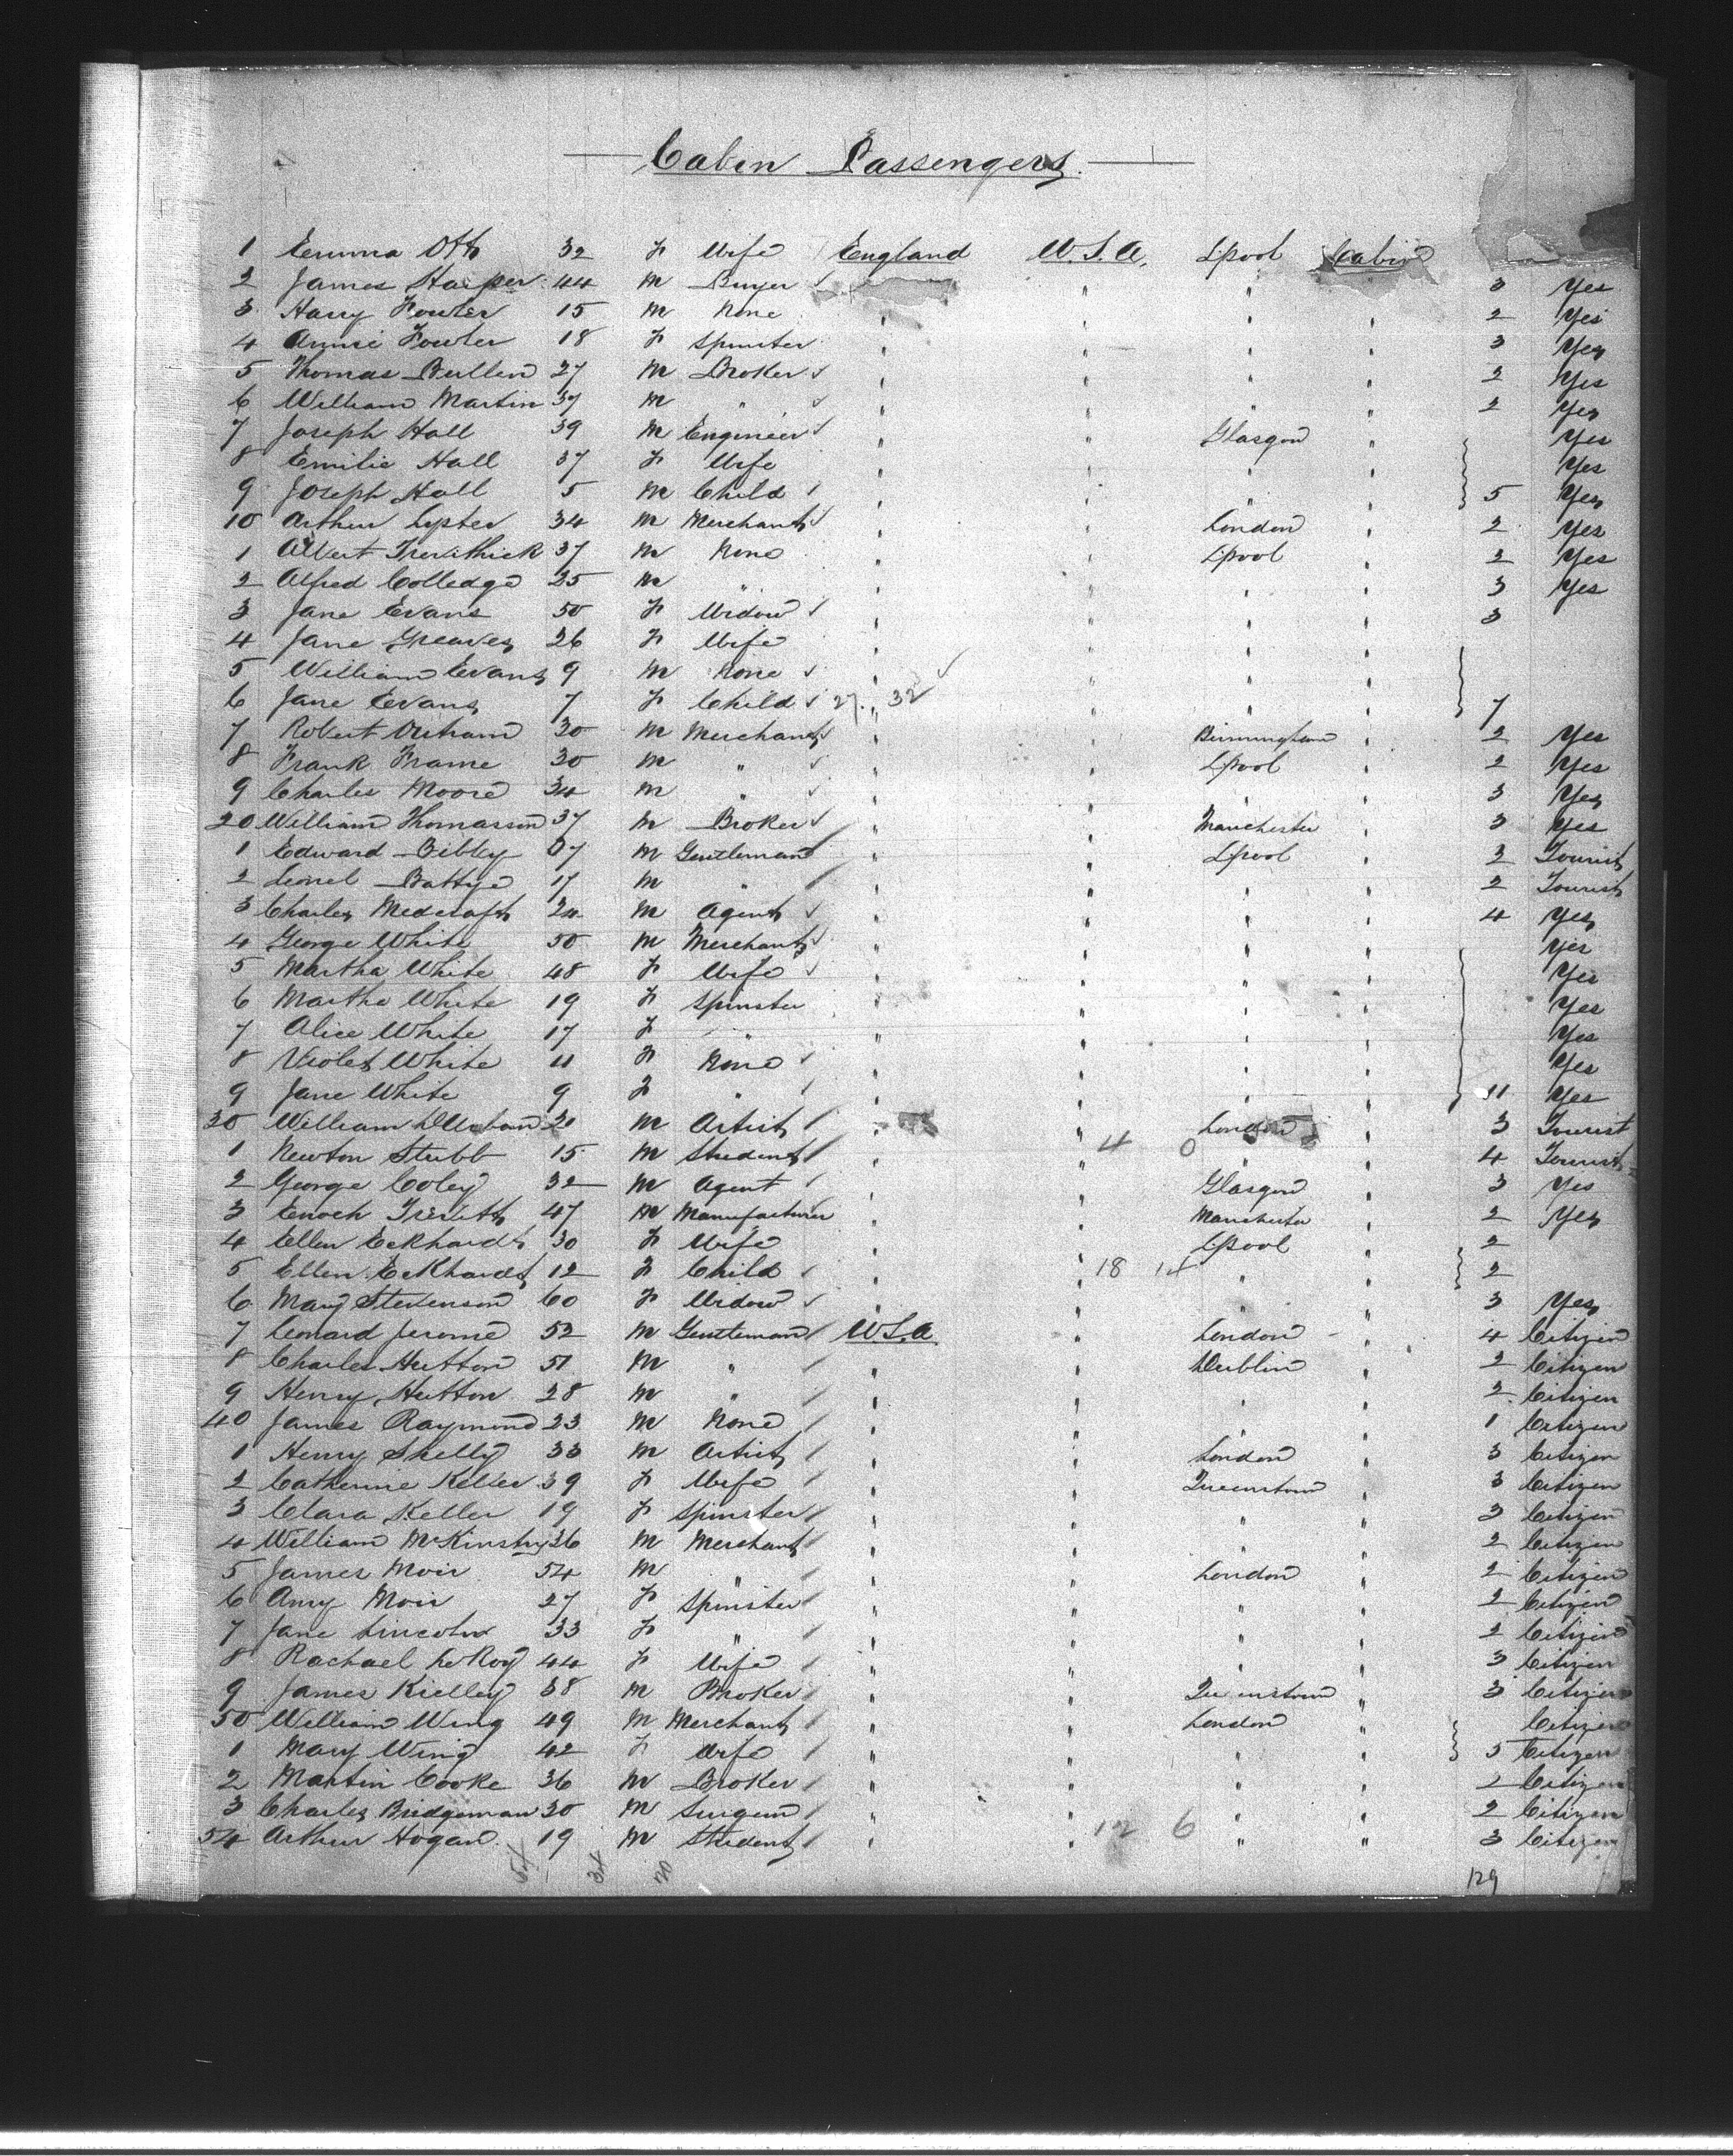 Cabin Passengers
1 Emma Ott 32 F Wife England U.S.A. Lpool Cabin
2 James Harper 44 M Buyer " " " 3 Yes
3 Harry Fowler 15 M None " " " " 2 Yes
4 Annie Fowler 18 F Spinster " " " " 3 Yes
5 Thomas Bullen 27 M Broker " " " " 2 Yes
6 William Martin 37 M " " " " " 2 Yes
7 Joseph Hall 39 M Engineer " " Glasgow " Yes
8 Emilie Hall 37 F Wife " " " " Yes
9 Joseph Hall 5 M Child " " " " 5 Yes
10 Arthur Lyster 34 M Merchant " " London " 2 Yes
1 Albert Trevithick 37 M None " " Lpool " 2 Yes
2 Alfred Colledge 25 M " " " " " 3 Yes
3 Jane Evans 50 F Widow " " " " 3
4 Jane Greaves 26 F Wife " " " "
5 William Evans 9 M None " " " "
6 Jane Evans 7 F Child 27. " 32 " " " 7
7 Robert Outram 30 M Merchant " " Birmingham " 2 Yes
8 Frank Frame 30 M " " " Lpool " 2 Yes
9 Charles Moore 34 M " " " " " 3 Yes
20 William Thomasson 37 M Broker " " Manchester " 3 Yes
1 Edward Bibby 37 M Gentleman " " Lpool " 2 Tourist
2 Lionel Battye 17 M " " " " " 2 Tourist
3 Charles Medcraft 24 M Agent " " " " 4 Yes
4 George White 50 M Merchant " " " " Yes
5 Martha White 48 F Wife " " " " Yes
6 Martha White 19 F Spinster " " " " Yes
7 Alice White 17 F " " " " " Yes
8 Violet White 11 F None " " " " Yes
9 Jane White 9 F " " " " " 11 Yes
30 William M Artist " " London " 3 Tourist
1 Newton Stubb 15 M Student " " 4 0 " " 4 Tourist
2 George Coley 32 M Agent " " Glasgow " 3 Yes
3 Enoch 47 M Manufacturer " " Manchester " 2 Yes
4 Ellen Eckhardt 30 F Wife " " Lpool " 2
5 Ellen Eckhardt 12 F Child " " 18 14 " " 2
6 Mary Stevenson 60 F Widow " " " " 3 Yes
7 Leonard Jerome 52 M Gentleman U.S.A " London " 4 Citizen
8 Charles Hutton 51 M " " " Dublin " 2 Citizen
9 Henry Hutton 28 M " " " " " 2 Citizen
40 James Raymond 23 M None " " " " 1 Citizen
1 Henry Skelly 33 M Artist " " London " 3 Citizen
2 Catherine Keller 39 F Wife " " Queenstown " 3 Citizen
3 Clara Keller 19 F Spinster " " " " 3 Citizen
4 William McKinstry 36 M Merchant " " " " 2 Citizen
5 James Moir 54 M " " " London " 2 Citizen
6 Amy Moir 27 F Spinster " " " " 2 Citizen
7 Jane Lincoln 33 F " " " " " 2 Citizen
8 Rachael LeRoy 44 F Wife " " " " 3 Citizen
9 James Kielley 38 M Broker " " Queenstown " 3 Citizen
50 William Wing 49 M Merchant " " London " Citizen
1 Mary Wing 42 F Wife " " " " 5 Citizen
2 Martin Cooke 36 M Broker " " " " 2 Citizen
3 Charles Bridgeman 30 M Surgeon " " " " 2 Citizen
54 Arthur Hogan 19 M Student " " 12 6 " " 3 Citizen
54 34 20 129